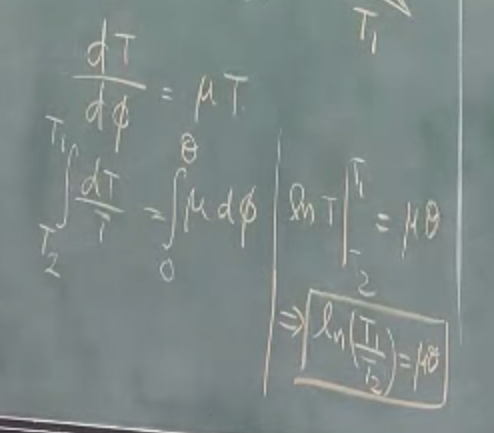 T₁
dT/dφ = μ T
∫_{T₂}^{T₁} dT/T = ∫₀^θ μ dφ
ln T |_{T₂}^{T₁} = μθ
⇒ ln(T₁/T₂) = μθ